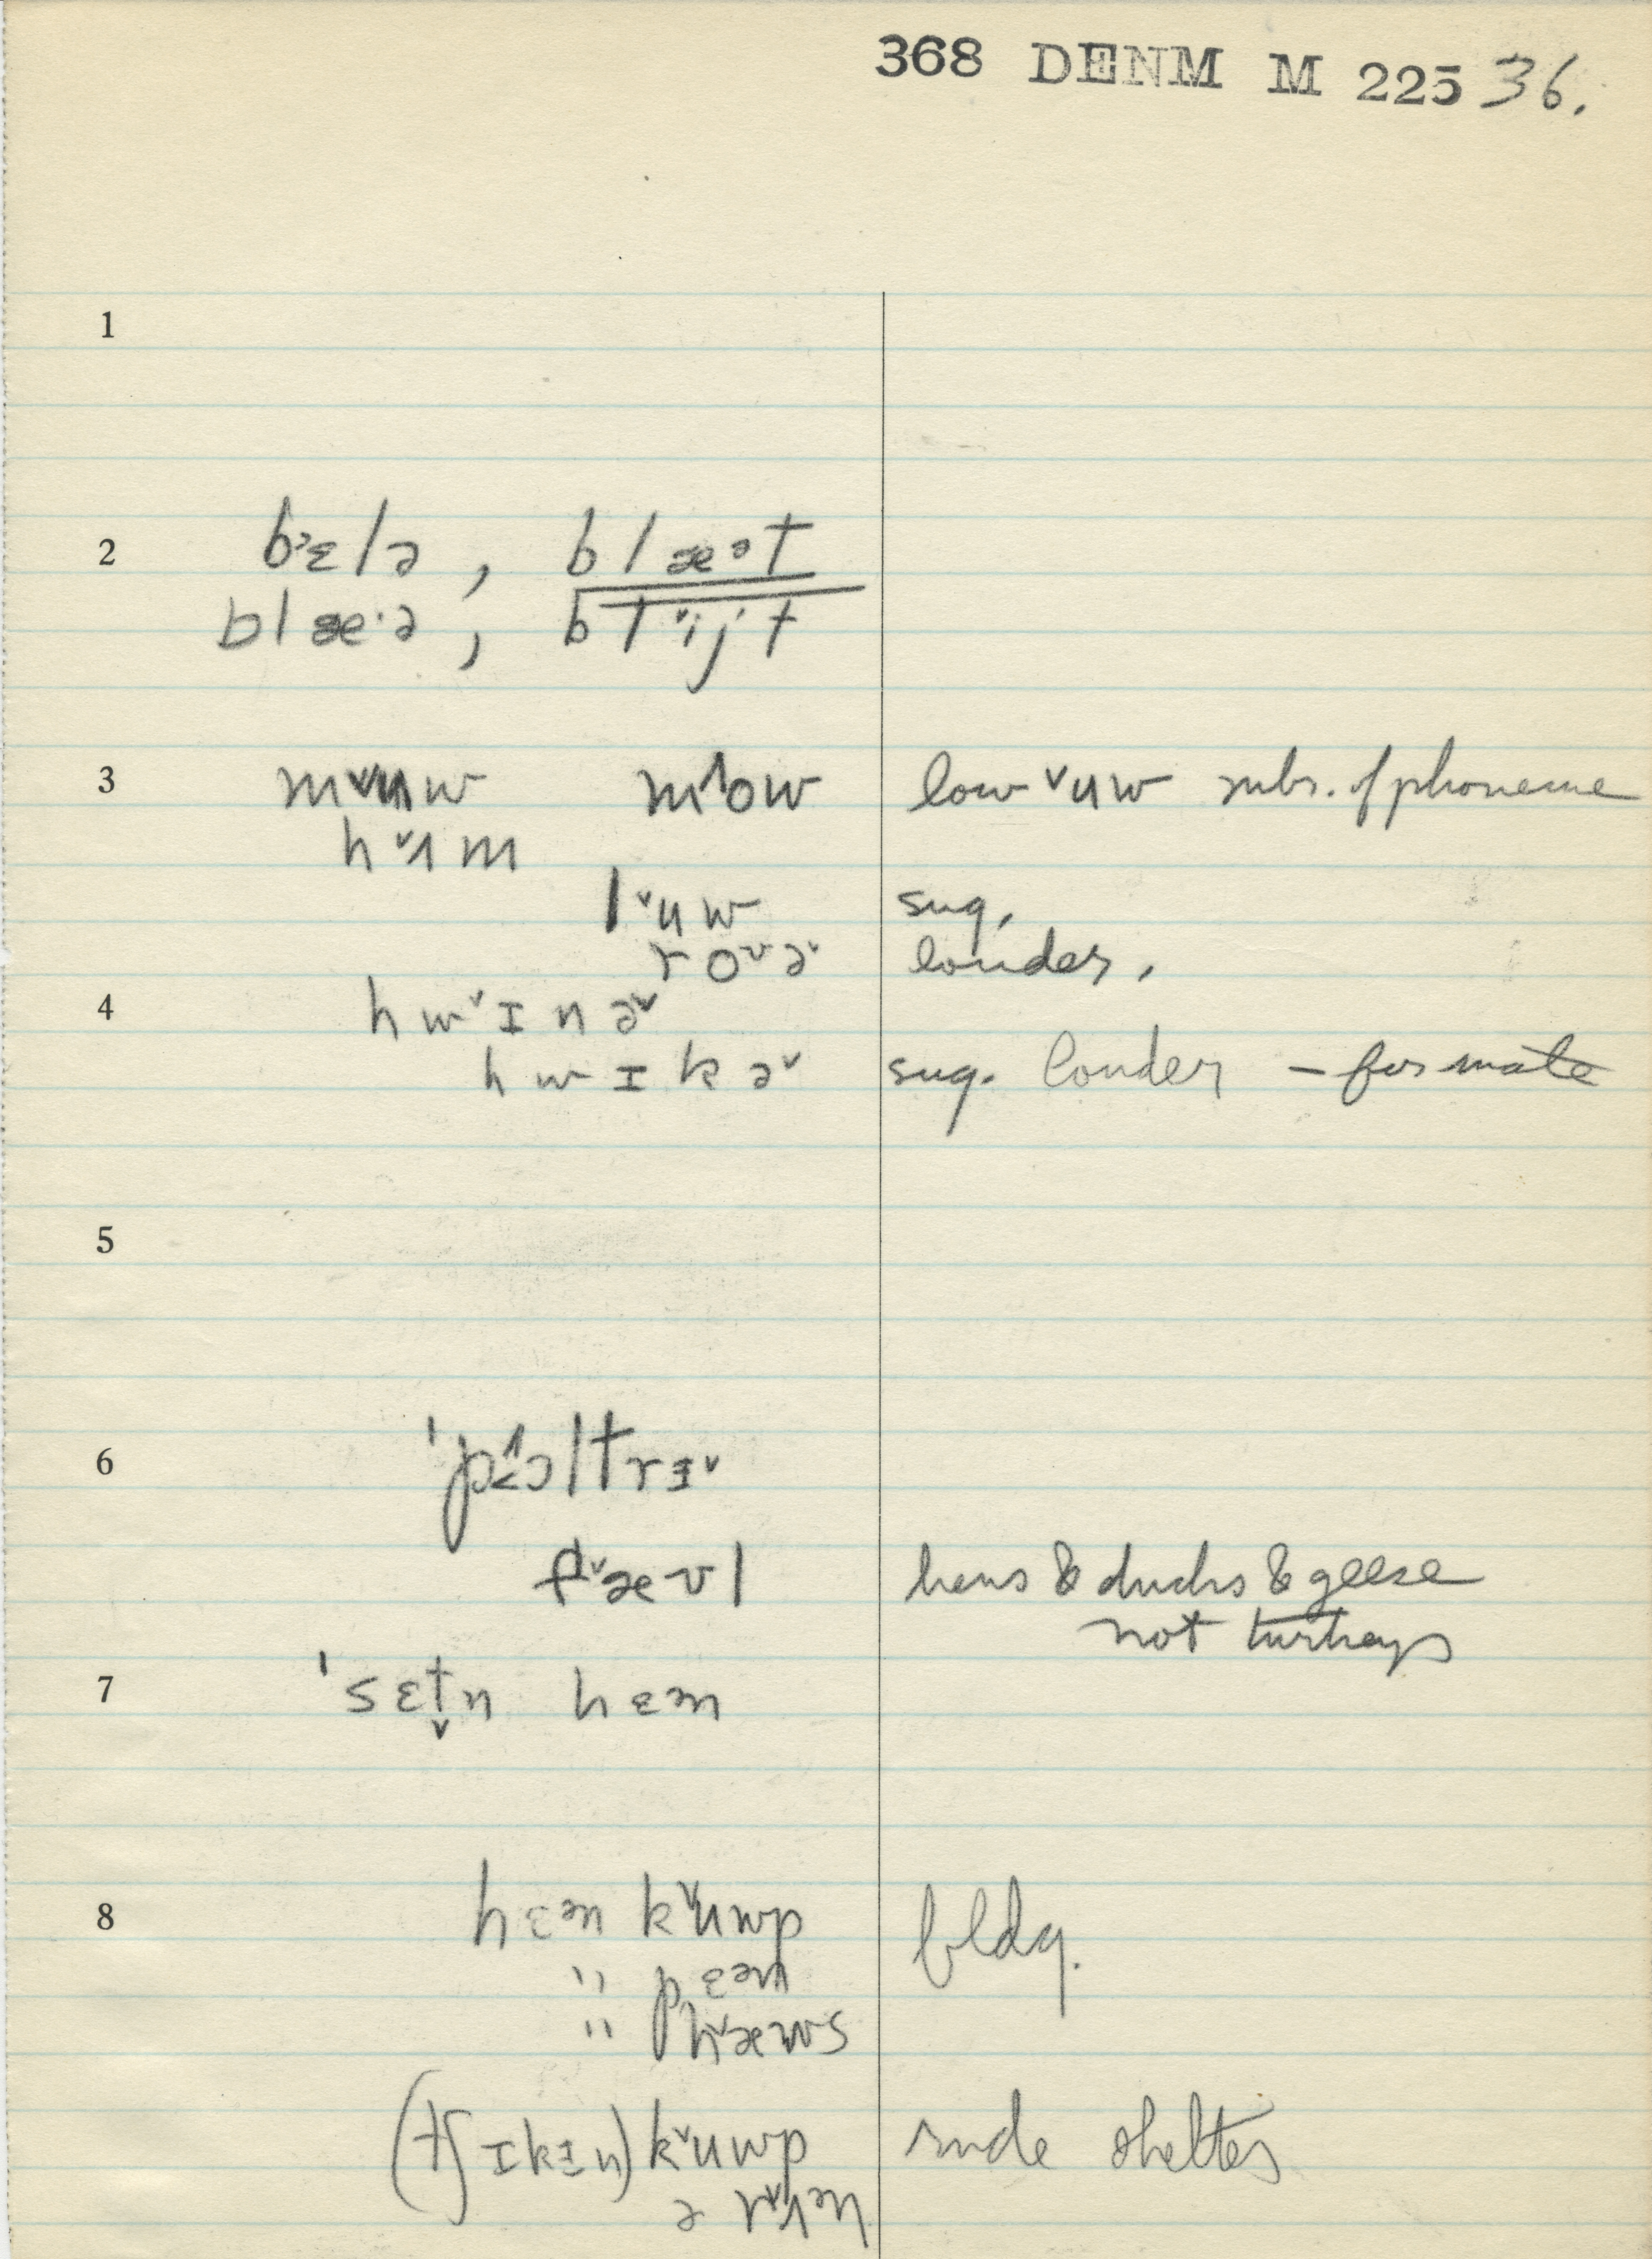 368 DENM M 225 36.
1
2 bɛlə , blæᵊt
blæ·ə , blˇijt
3 mˇuw mˆow low ˇuw subs. of phoneme
hˇʌm
lˇuw sug.
rovəˇ louder.
4 hwˇɪnəˇ
hwɪkəˇ sug. louder – for mate
5
6 ˈpɔltrɪˇ
fˇævl hens & ducks & geese
not turkeys
7 ˈsɛtn hɛᵊn
8 hɛᵊn kˇuwp bldg.
" pɛᵊn
" hˇæws
(tʃɪkɪn) kˇuwp rude shelter